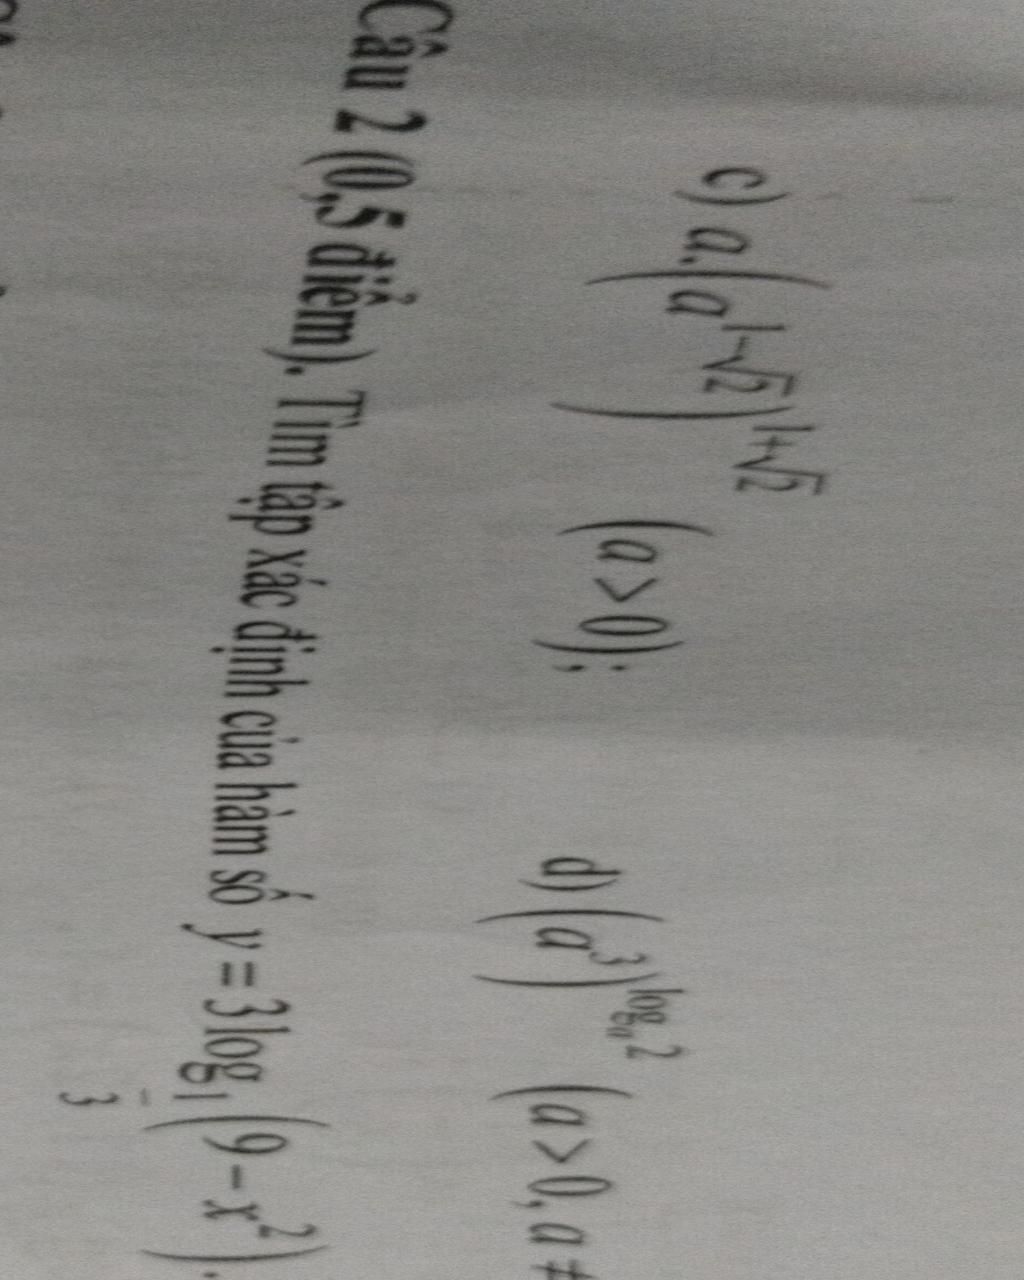 c) a.(a^{1-√2})^{1+√2} (a > 0); d) (a^3)^{log_a 2} (a > 0, a ≠
Câu 2 (0,5 điểm). Tìm tập xác định của hàm số y = 3 log_{1/3} (9 − x^2).